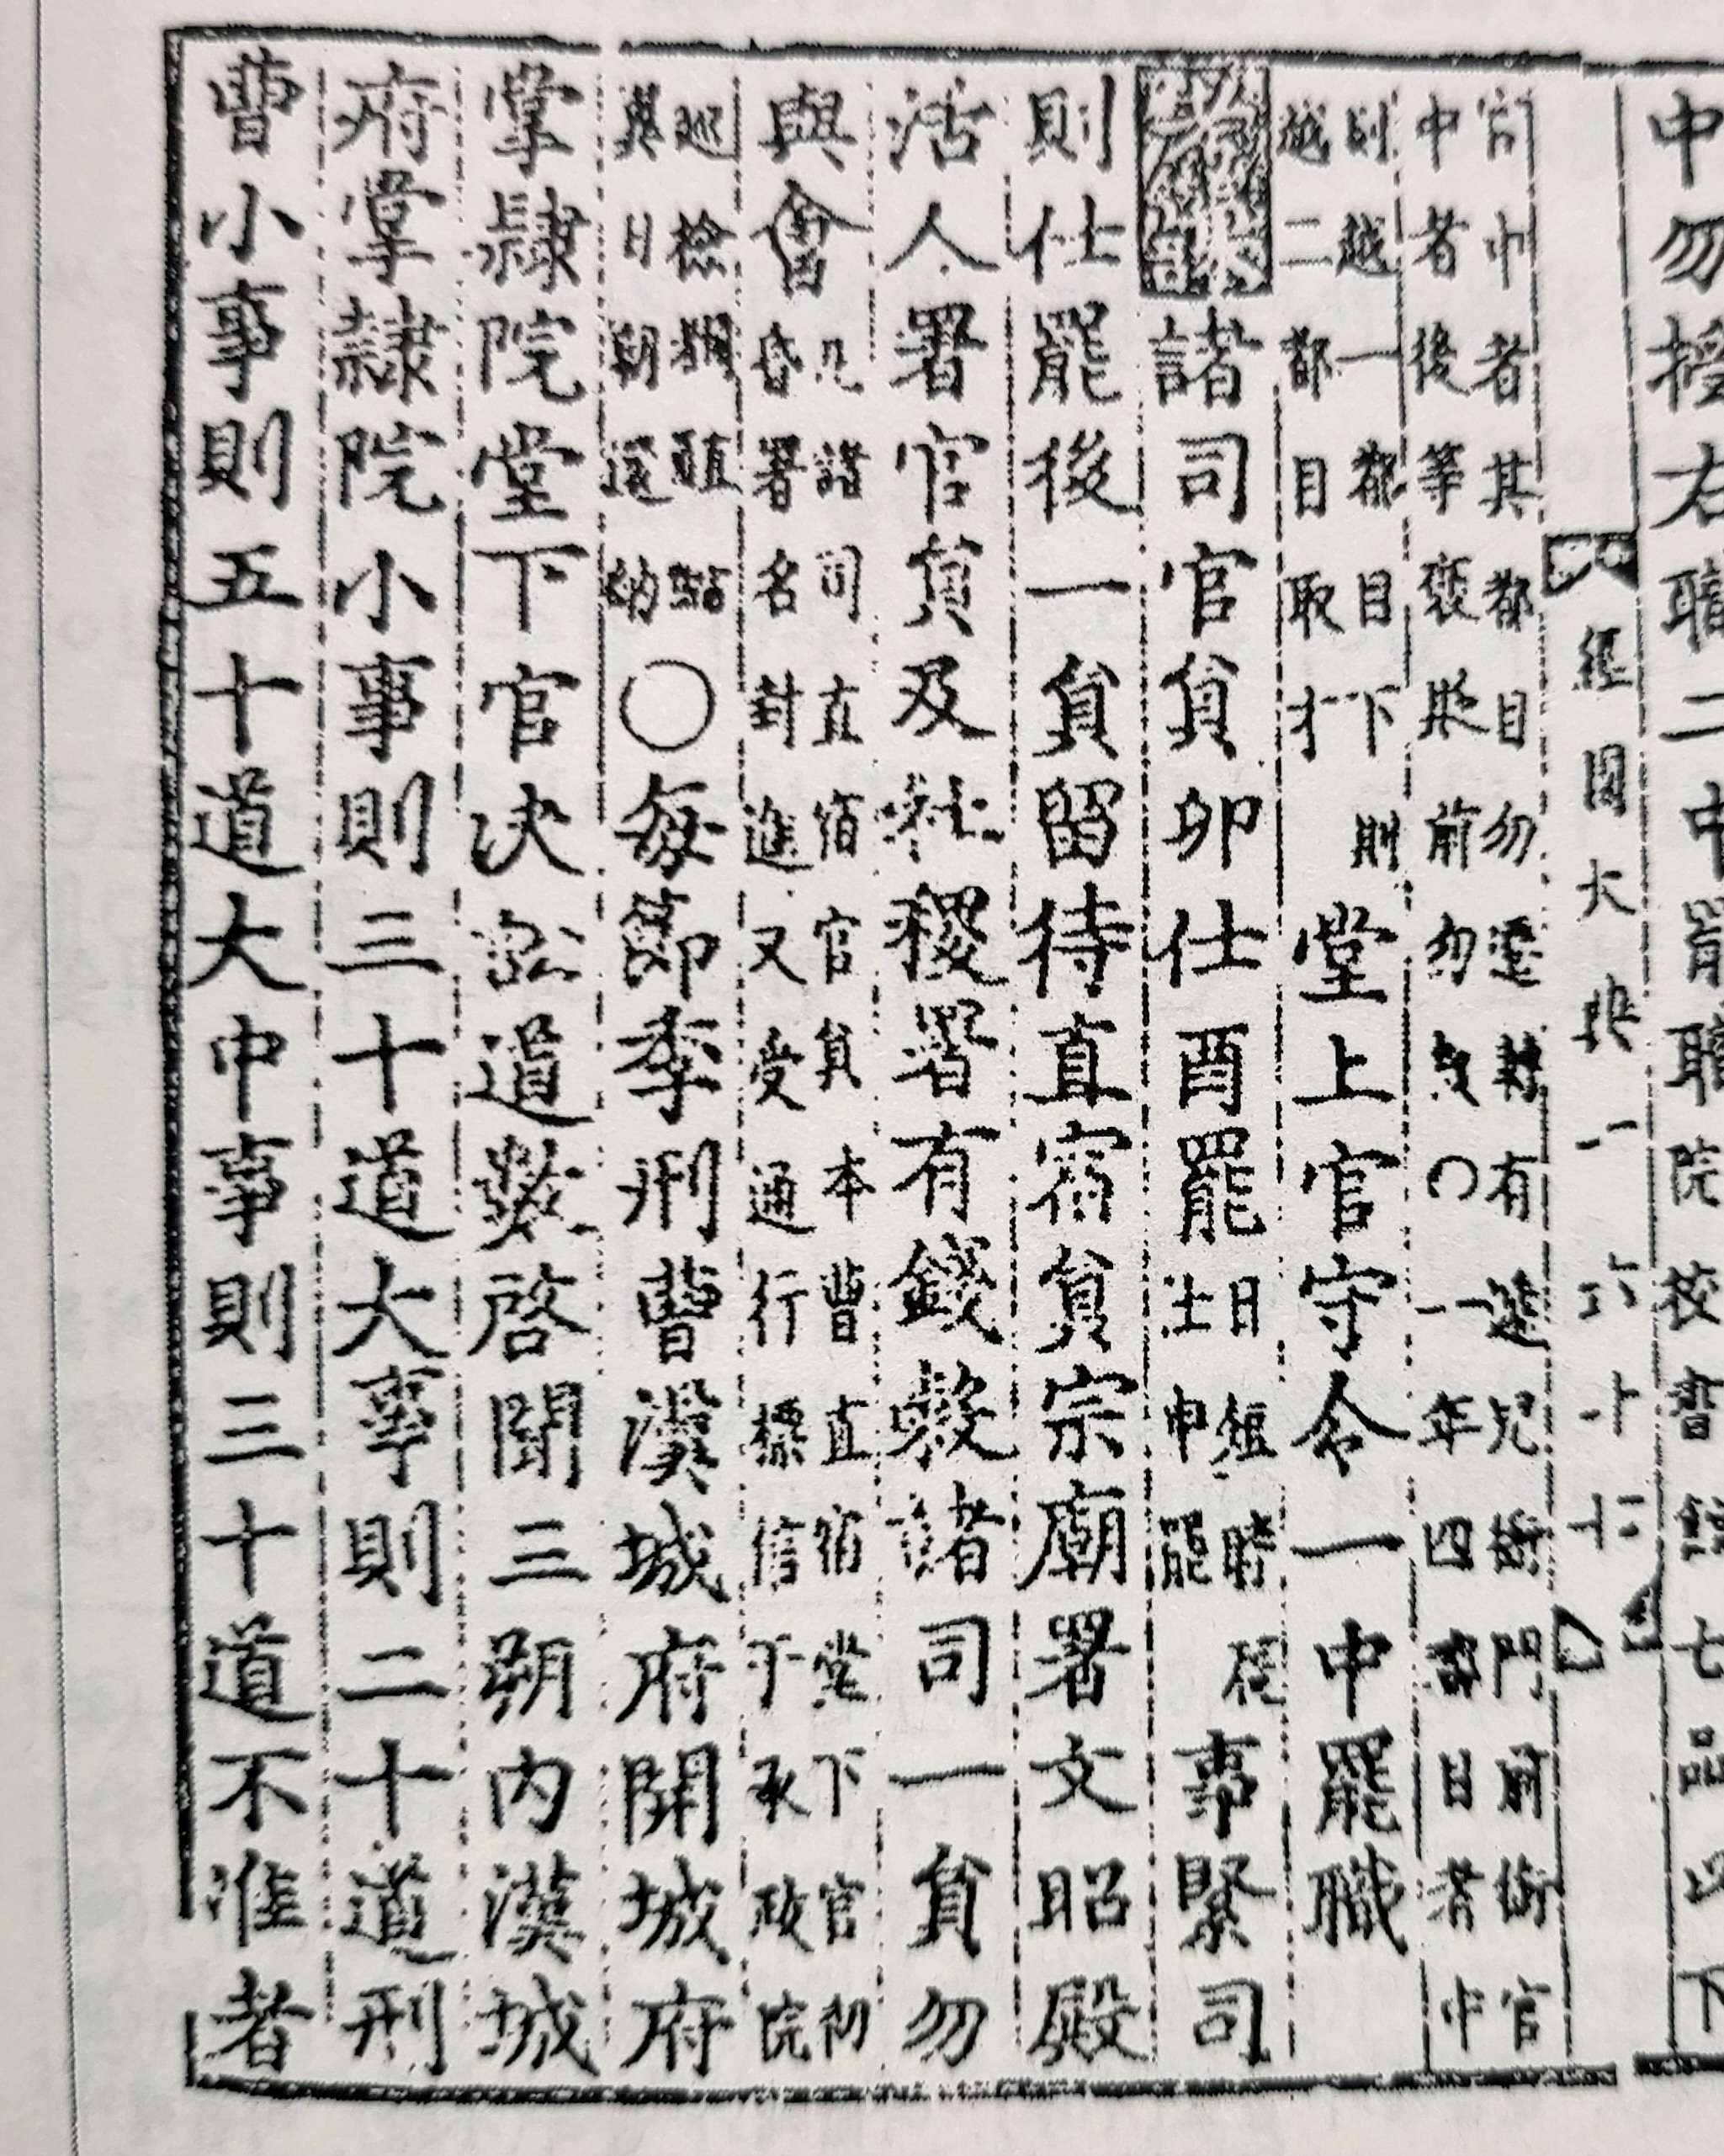 中勿授右職二中罷職院校書館七品以下
經國大典一 六十
官中者其都目勿遷轉有遞兒衙門前銜官
中者後等褒貶前勿敍〇一年四都目者中
則越一都目下則
越二都目取才
堂上官守令一中罷職
諸司官員卯仕酉罷
日短時辰
仕申罷
事緊司
則仕罷後一員留待直宿員宗廟署文昭殿
活人署官員及社稷署有錢穀諸司一員勿
與會
凡諸司直宿官員本曹直宿堂下官初
昏署名封進又受通行標信于承政院
巡檢
翼日朝還納
〇每節季刑曹漢城府開城府
掌隷院堂下官决訟道數啓聞三朔內漢城
府掌隷院小事則三十道大事則二十道刑
曹小事則五十道大中事則三十道不准者